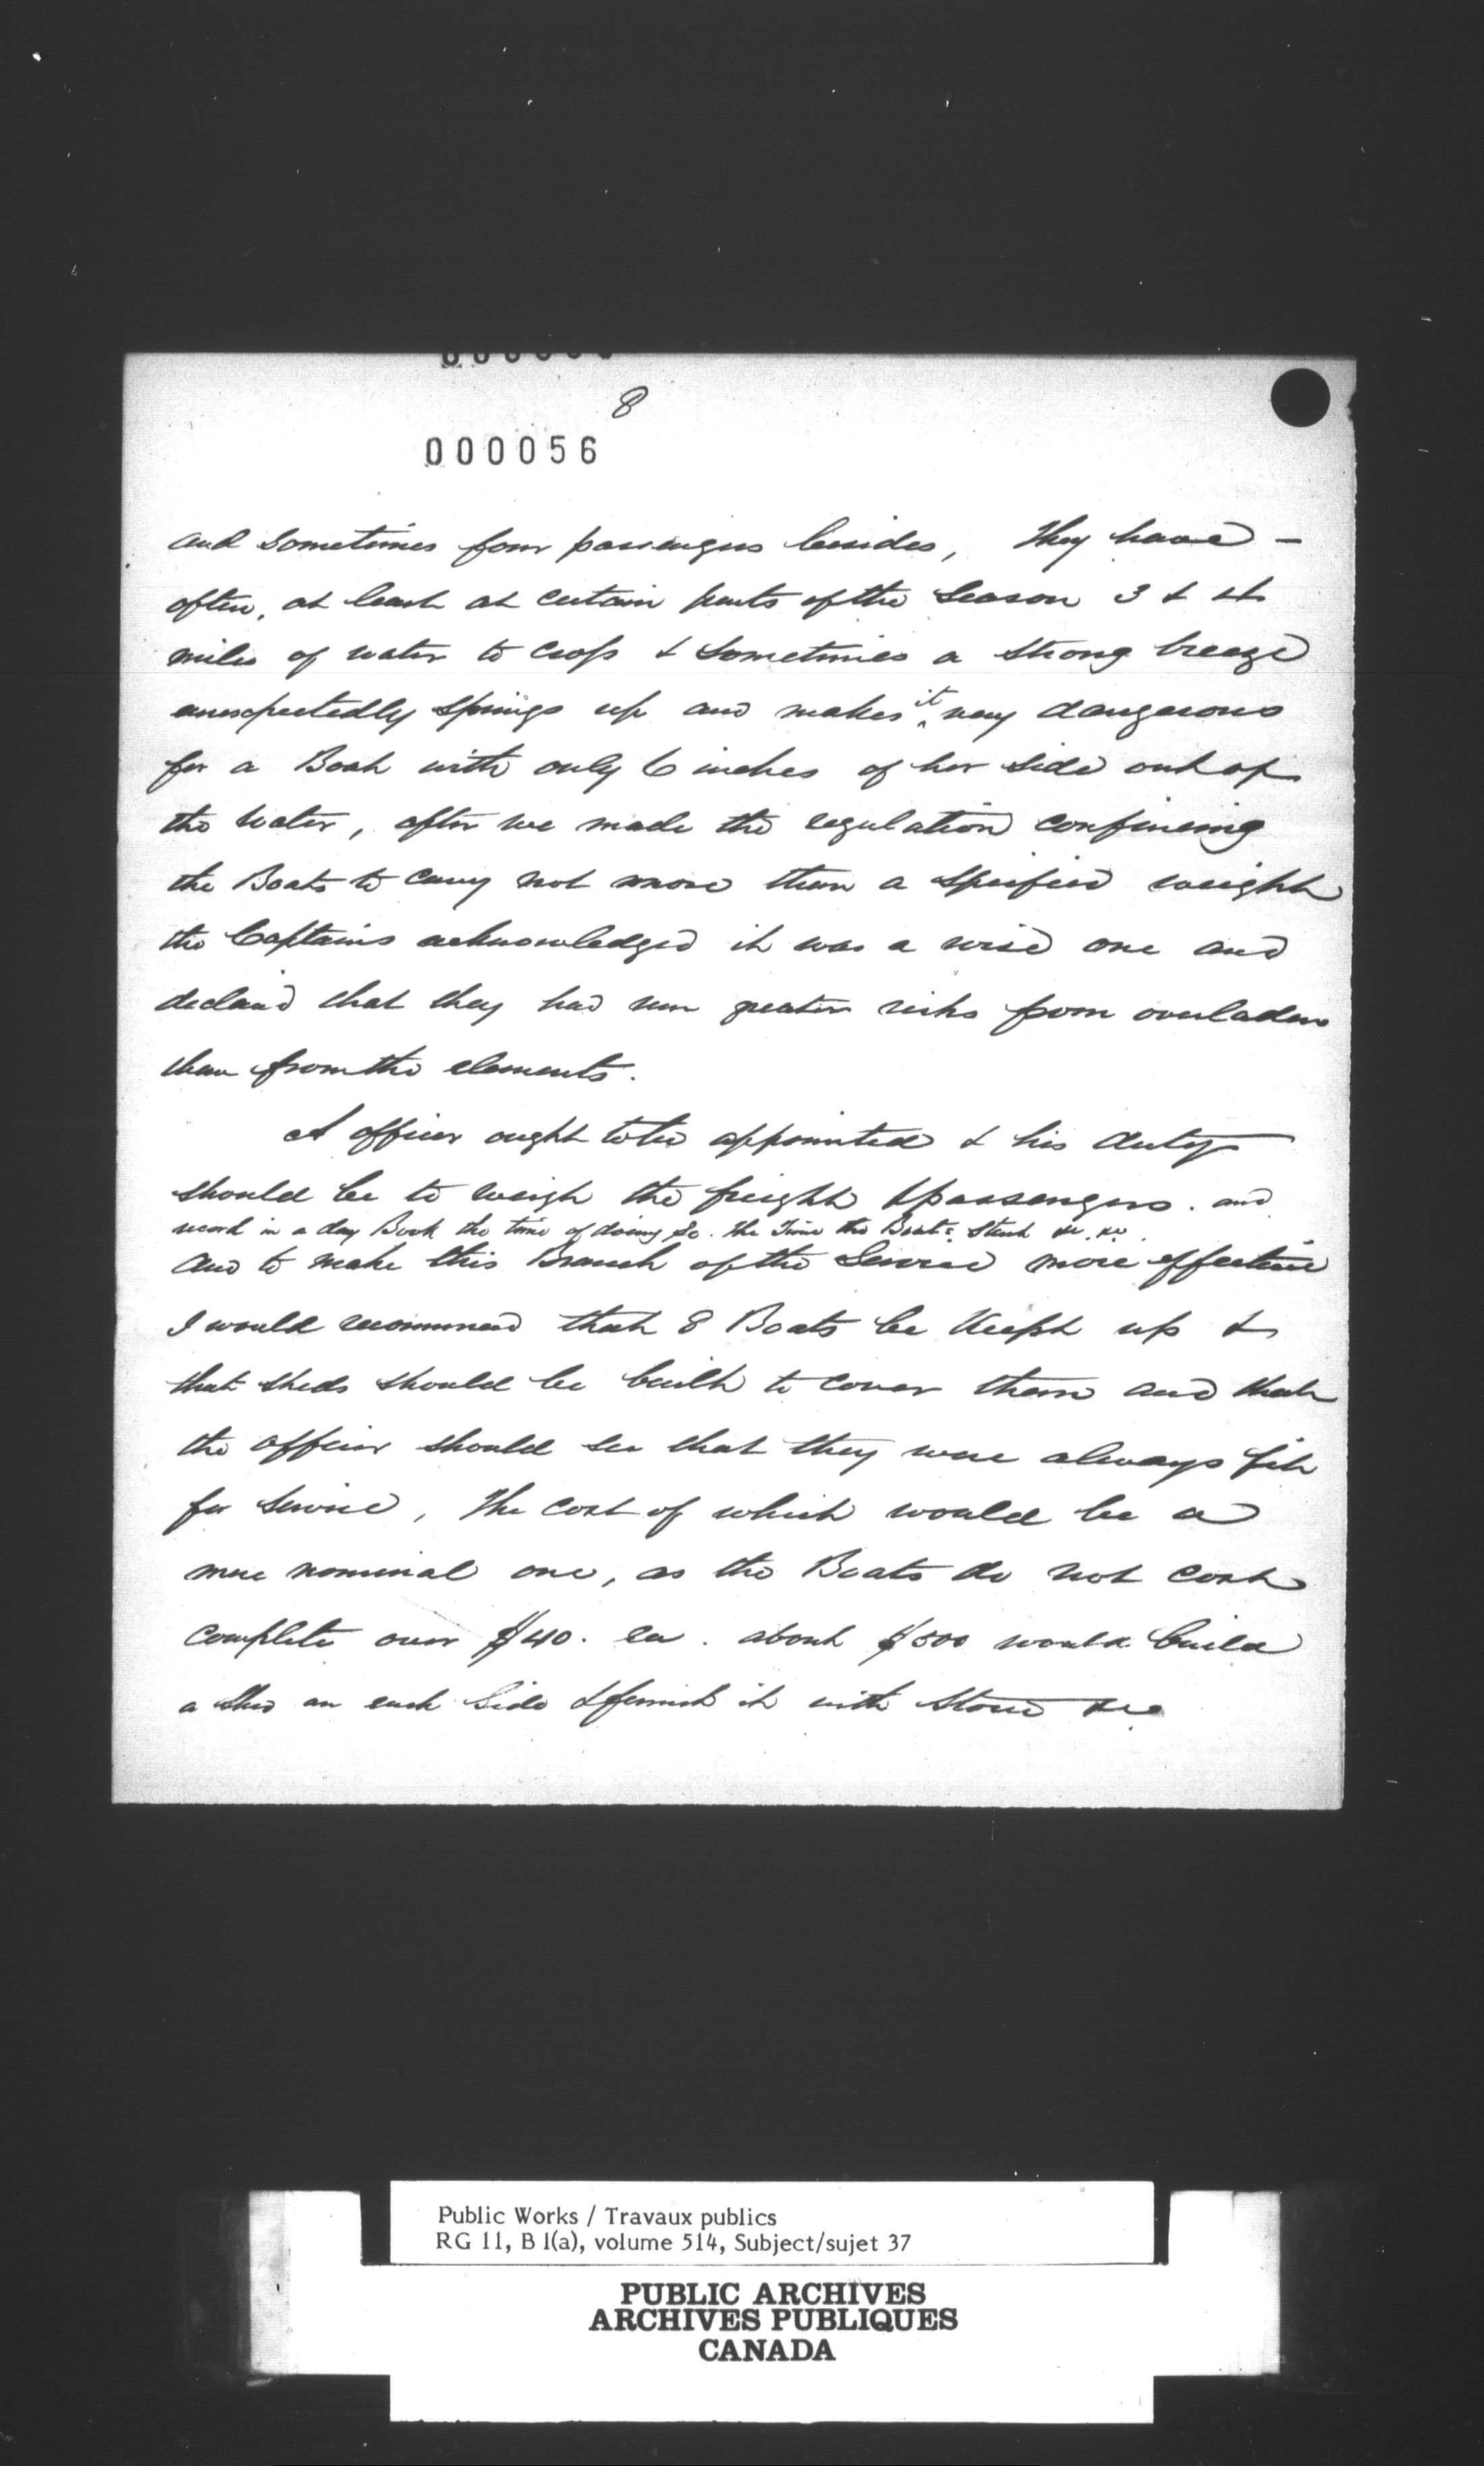 8
000056
and sometimes four passengers besides, They have –
often, at least at certain parts of the Season 3 & 4
miles of water to cross & sometimes a strong breeze
unexpectedly springs up and makes it very dangerous
for a Boat with only 6 inches of her side out of
the water, after we made the regulation confineing
the Boats to carry not more than a specified weight
the Captains acknowledged it was a wise one and
declared that they had run greater risks from overladen
than from the elements.
A officer ought to be appointed & his duty
should be to weigh the freight & passengers. and
record in a day Book the time of doing so. The Time the Boats start &c. &c.
and to make this Branch of the Service more effective
I would recommend that 8 Boats be Keept up &
that sheds should be built to cover them and that
the officer should see that they were always fit
for service, The cost of which would be a
mere nominal one, as the Boats do not cost
complete over $40. ea. about $500 would build
a shed on each side & furnish it with stove &c
Public Works / Travaux publics
RG 11, B 1(a), volume 514, Subject/sujet 37
PUBLIC ARCHIVES
ARCHIVES PUBLIQUES
CANADA